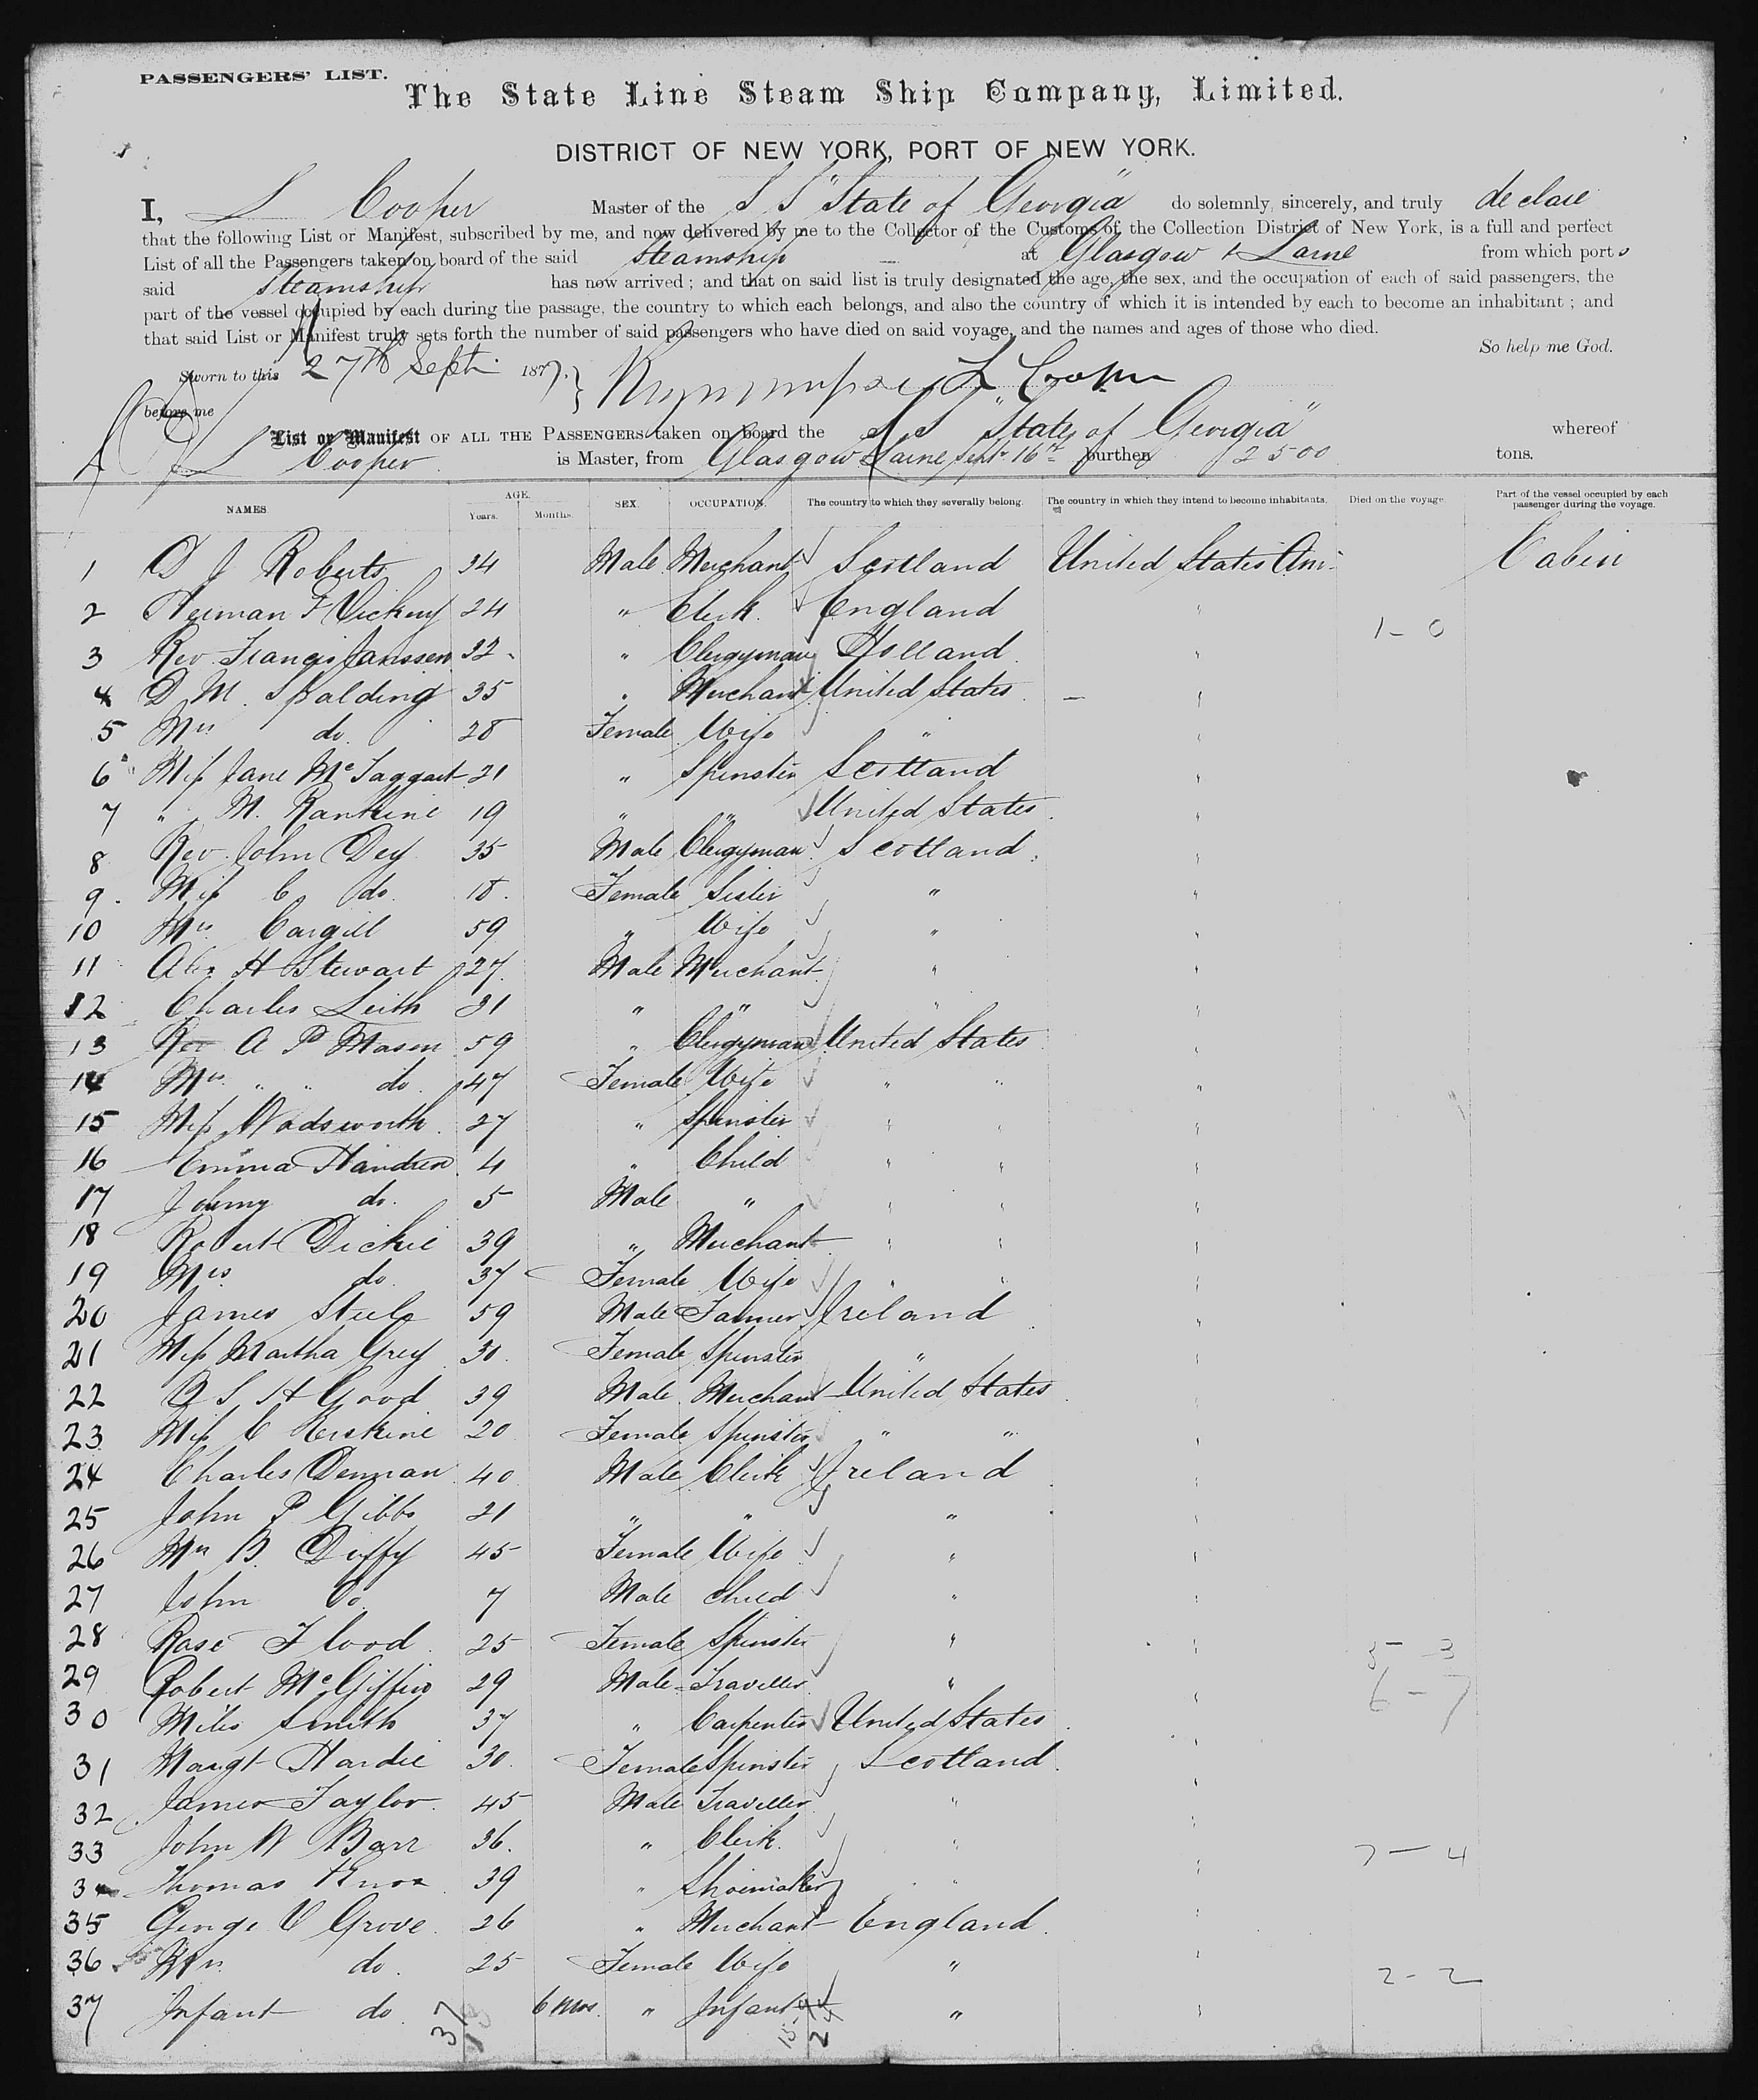 PASSENGERS' LIST.
The State Line Steam Ship Company, Limited.
DISTRICT OF NEW YORK, PORT OF NEW YORK.
I, L Cooper Master of the S S "State of Georgia" do solemnly, sincerely, and truly declare
that the following List or Manifest, subscribed by me, and now delivered by me to the Collector of the Customs of the Collection District of New York, is a full and perfect
List of all the Passengers taken on board of the said Steamship at Glasgow & Larne from which ports
said Steamship has now arrived ; and that on said list is truly designated the age, the sex, and the occupation of each of said passengers, the
part of the vessel occupied by each during the passage, the country to which each belongs, and also the country of which it is intended by each to become an inhabitant ; and
that said List or Manifest truly sets forth the number of said passengers who have died on said voyage, and the names and ages of those who died.
So help me God.
Sworn to this 27th Sept 1877. L Cooper
before me
List or Manifest OF ALL THE PASSENGERS taken on board the S S "State of Georgia" whereof
L Cooper is Master, from Glasgow Larne Sept 16th burthen 2500 tons.
NAMES AGE. Years. Months. SEX. OCCUPATION. The country to which they severally belong. The country in which they intend to become inhabitants. Died on the voyage. Part of the vessel occupied by each passenger during the voyage.
1 D J Roberts 34 Male Merchant Scotland United States Am. Cabin
2 Herman F Vickery 24 " Clerk England "
1 - 0
3 Rev. Francis Janssen 32 " Clergyman Holland "
4 D M. Spalding 35 " Merchant United States "
5 Mrs do. 28 Female Wife " "
6 Miss Jane McTaggart 21 " Spinster Scotland "
7 " M. Rankine 19 " " United States "
8 Rev. John Dey 35 Male Clergyman Scotland "
9 Miss C do. 18 Female Sister " "
10 Mrs Cargill 59 " Wife " "
11 Alex H Stewart 27 Male Merchant " "
12 Charles Leith 31 " " " "
13 Rev A P Mason 59 " Clergyman United States "
14 Mrs " " do. 47 Female Wife " " "
15 Miss Wadsworth 27 " Spinster " " "
16 Emma 4 " Child " " "
17 Johnny do. 5 Male " " " "
18 Robert Dickie 39 " Merchant " " "
19 Mrs do 37 Female Wife " " "
20 James Steele 59 Male Farmer Ireland "
21 Miss Martha Grey 30 Female Spinster " "
22 S H Good 39 Male Merchant United States "
23 Miss C Erskine 20 Female Spinster " " "
24 Charles Denman 40 Male Clerk Ireland "
25 John P Gibbs 21 " " " "
26 Mrs B. Duffy 45 Female Wife " "
27 John Do. 7 Male Child " "
28 Rose Flood 25 Female Spinster " "
5 - 3
29 Robert McGiffin 29 Male Traveller " "
6 - 7
30 Miles Smith 37 " Carpenter United States "
31 Margt Hardie 30 Female Spinster Scotland "
32 James Taylor 45 Male Traveller " "
33 John W Barr 36 " Clerk " "
7 - 4
34 Thomas Knox 39 " Shoemaker " "
35 George V Grove 26 " Merchant England "
36 Mrs do. 25 Female Wife " "
2 - 2
37 Infant do. 6 mos. " Infant " "
37